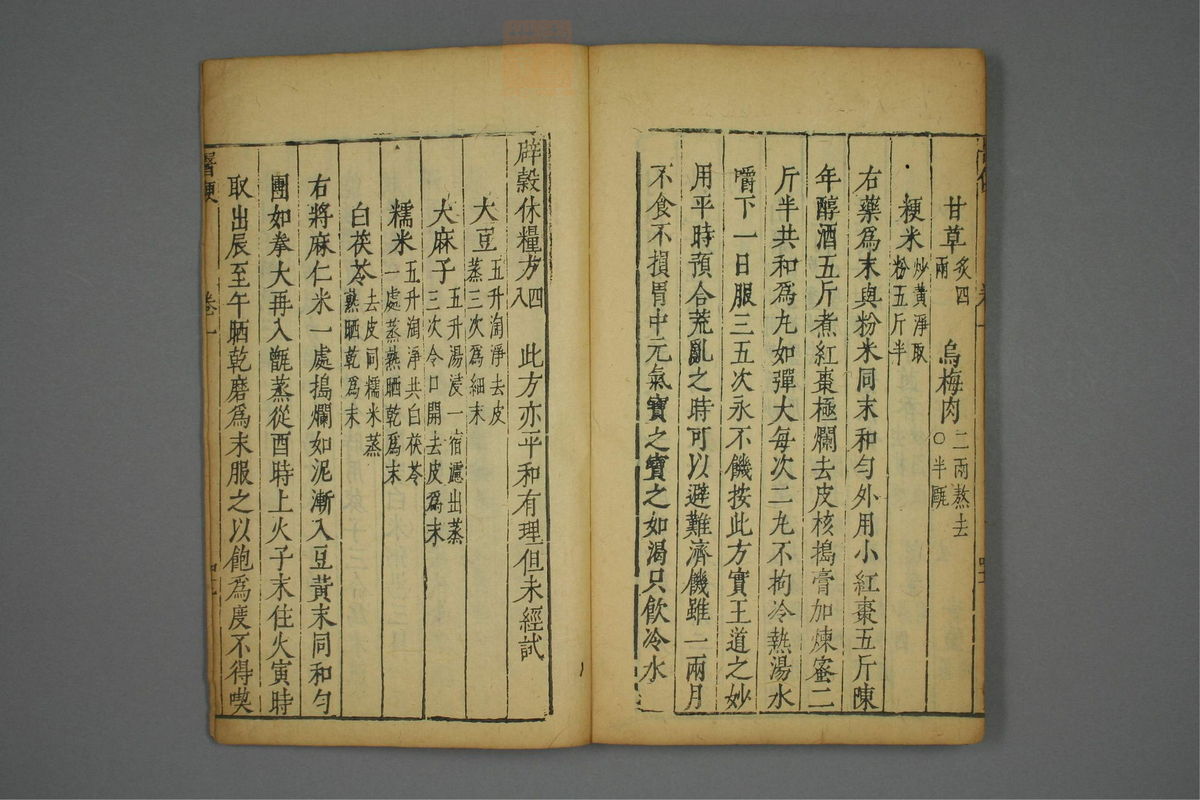 甘草炙四兩 烏梅肉二兩熬去○半甌
粳米炒黃淨取粉五斤半
右藥為末與粉米同末和勻外用小紅棗五斤陳
年醇酒五斤煮紅棗極爛去皮核搗膏加煉蜜二
斤半共和為丸如彈大每次二丸不拘冷熱湯水
嚼下一日服三五次永不饑按此方實王道之妙
用平時預合荒亂之時可以避難濟饑雖一兩月
不食不損胃中元氣寶之寶之如渴只飲冷水
辟穀休糧方四八 此方亦平和有理但未經試
大豆五升淘淨去皮蒸三次為細末
大麻子五升湯浸一宿濾出蒸三次令口開去皮為末
糯米五升淘淨共白茯苓一處蒸熟晒乾為末
白茯苓去皮同糯米蒸熟晒乾為末
右將麻仁米一處搗爛如泥漸入豆黃末同和勻
團如拳大再入甑蒸從酉時上火子末住火寅時
取出辰至午晒乾磨為末服之以飽為度不得喫
醫便 卷一